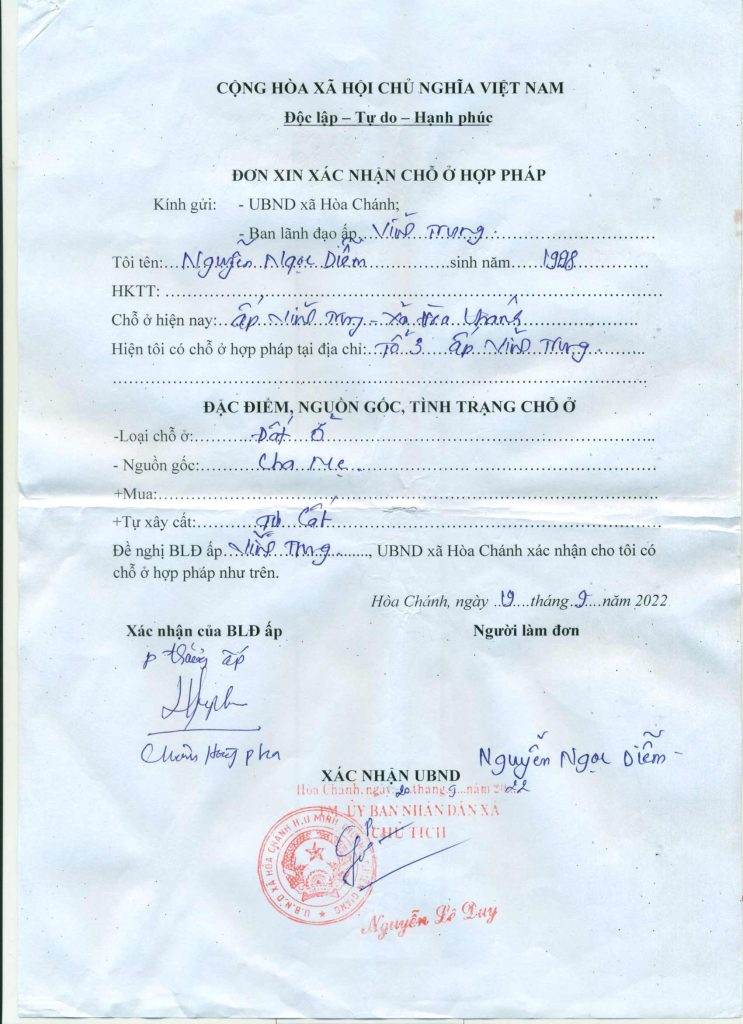 CỘNG HÒA XÃ HỘI CHỦ NGHĨA VIỆT NAM
Độc lập – Tự do – Hạnh phúc
ĐƠN XIN XÁC NHẬN CHỖ Ở HỢP PHÁP
Kính gửi: - UBND xã Hòa Chánh;
- Ban lãnh đạo ấp Vĩnh Trung.
Tôi tên: Nguyễn Ngọc Diễm sinh năm
HKTT:
Chỗ ở hiện nay: ấp Vĩnh Trung - xã Hòa Chánh
Hiện tôi có chỗ ở hợp pháp tại địa chỉ: Tổ 3 ấp Vĩnh Trung.
ĐẶC ĐIỂM, NGUỒN GỐC, TÌNH TRẠNG CHỖ Ở
-Loại chỗ ở: Đất ở
- Nguồn gốc: Cha Mẹ
+Mua:
+Tự xây cất: Tự Cất
Đề nghị BLĐ ấp Vĩnh Trung, UBND xã Hòa Chánh xác nhận cho tôi có
chỗ ở hợp pháp như trên.
Hòa Chánh, ngày 19 tháng 9 năm 2022
Xác nhận của BLĐ ấp Người làm đơn
ấp
Nguyễn Ngọc Diễm
XÁC NHẬN UBND
Hòa Chánh, ngày 20 tháng 9 năm 2022
TM. ỦY BAN NHÂN DÂN XÃ
P CHỦ TỊCH
U.B.N.D XÃ HÒA CHÁNH H.U MINH GIANG
Nguyễn Lê Duy